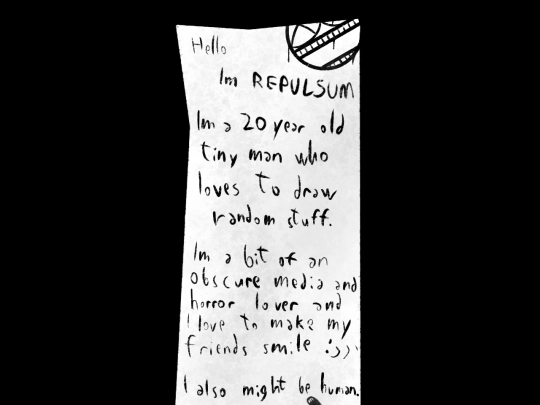 Hello
Im REPULSUM
Im a 20 year old
tiny man who
loves to draw
random stuff.
Im a bit of an
obscure media and
horror lover and
I love to make my
friends smile :))
I also might be human.